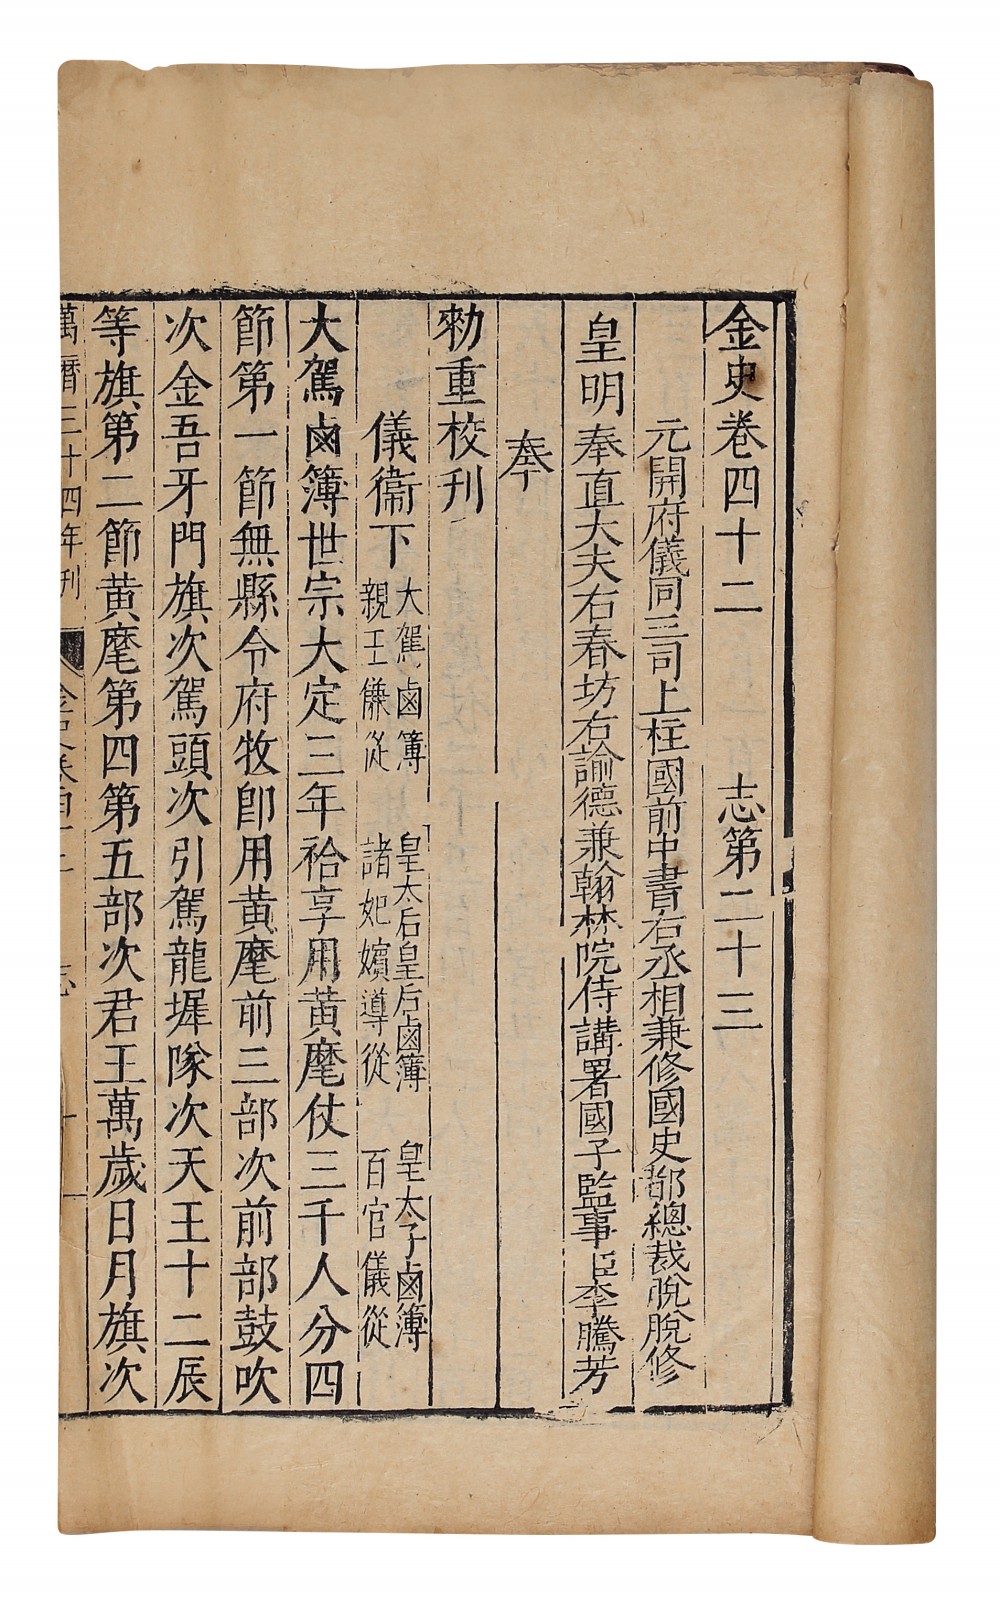 金史卷四十二　志第二十三
元開府儀同三司上柱國前中書右丞相兼修國史都總裁脫脫修
皇明奉直大夫右春坊右諭德兼翰林院侍講署國子監事臣李騰芳
奉
勑重校刊
儀衞下
大駕鹵簿　皇太后皇后鹵簿　皇太子鹵簿
親王傔從　諸妃嬪導從　百官儀從
大駕鹵簿世宗大定三年祫享用黃麾仗三千人分四
節第一節無縣令府牧卽用黃麾前三部次前部鼓吹
次金吾牙門旗次駕頭次引駕龍墀隊次天王十二辰
等旗第二節黃麾第四第五部次君王萬歲日月旗次
萬曆三十四年刊
金史卷四十二　志